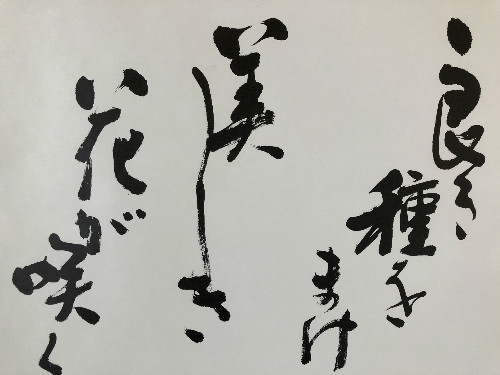 良き
種を
まけ
美しき
花が
咲く